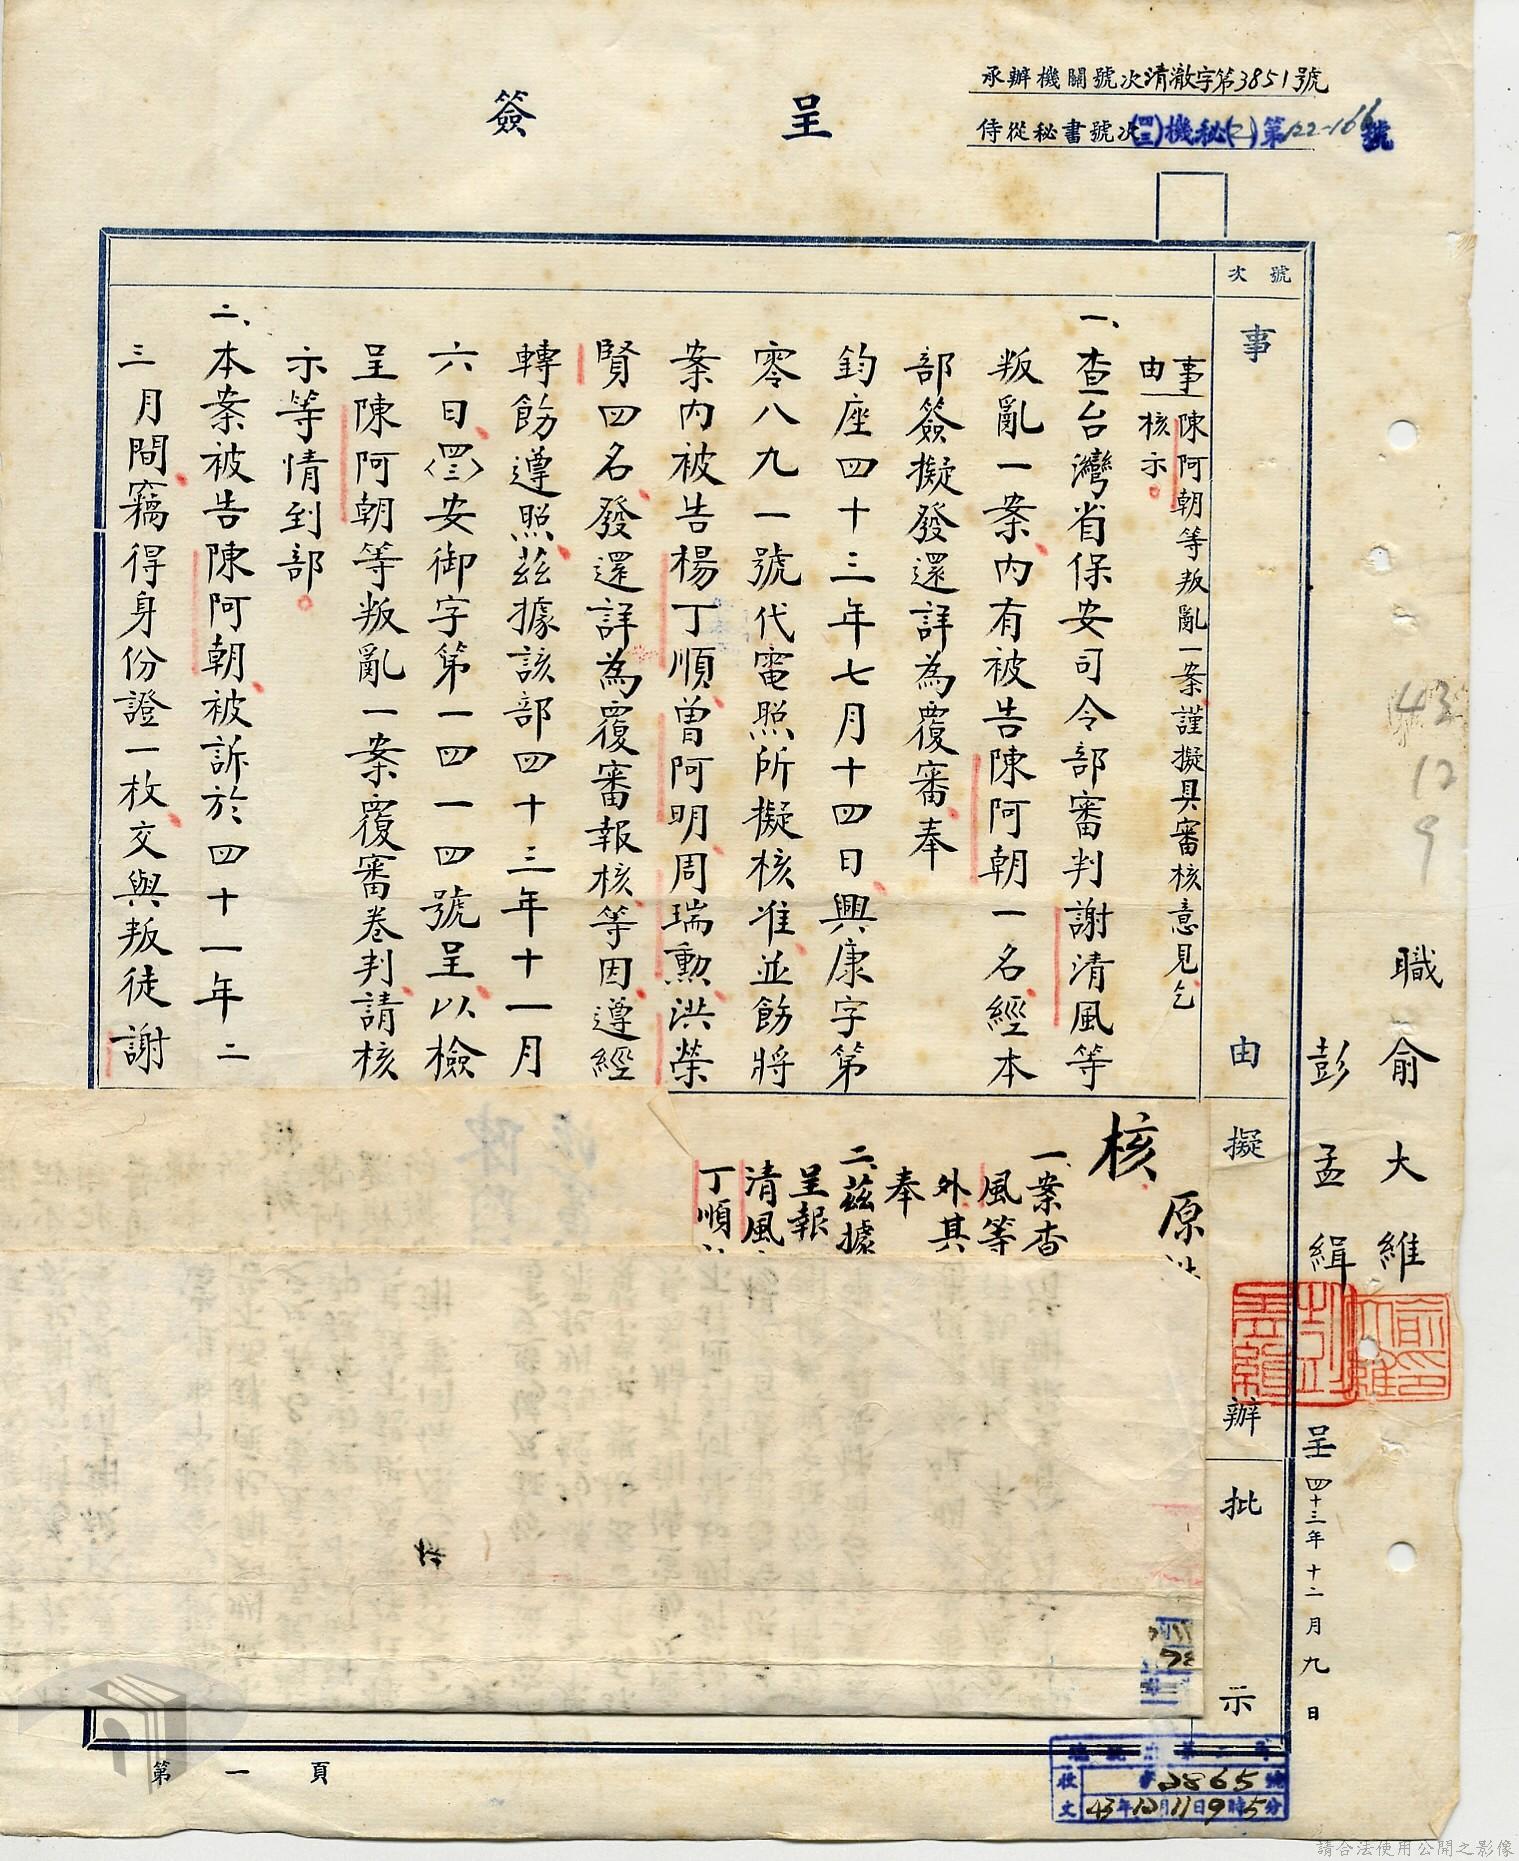 承辦機關號次清澈字第3851號
侍從秘書號次(四三)機秘(乙)第122-166號
簽呈
號次
事由
擬辦
批示
職俞大維
彭孟緝
呈四十三年十二月九日
43 12 9
事由 陳阿朝等叛亂一案謹擬具審核意見乞
核示。
一、查台灣省保安司令部審判謝清風等
叛亂一案、內有被告陳阿朝一名、經本
部簽擬發還詳為覆審、奉
鈞座四十三年七月十四日、興康字第
零八九一號代電照所擬核准、並飭將
案內被告楊丁順、曾阿明、周瑞勳、洪榮
賢四名、發還詳為覆審報核、等因、遵經
轉飭遵照、茲據該部四十三年十一月
六日、(四三)安御字第一四一四號呈、以檢
呈陳阿朝等叛亂一案覆審卷判、請核
示等情到部。
二、本案被告陳阿朝、被訴於四十一年二
三月間、竊得身份證一枚、交與叛徒謝
核
原
一、案查
風等
外其
奉
二、茲據
呈報
清風
丁順
收文 2865號
43年12月11日9時5分
第一頁
請合法使用公開之影像